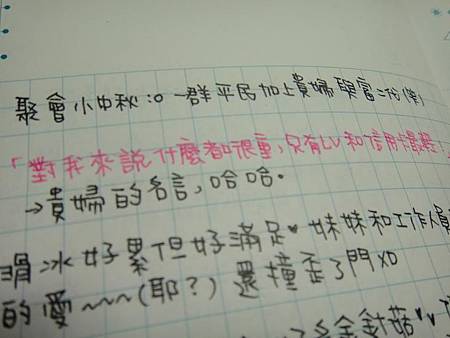 聚會小中秋:o 一群平民加上貴婦與富二代(笑)
「對我來說什麼都很重,只有LV和信用卡最輕!」
→貴婦的名言,哈哈。
滑冰好累但好滿足♥ 妹妹和工作人員
的愛~~~(耶?) 還撞歪了門XD
金針菇♥